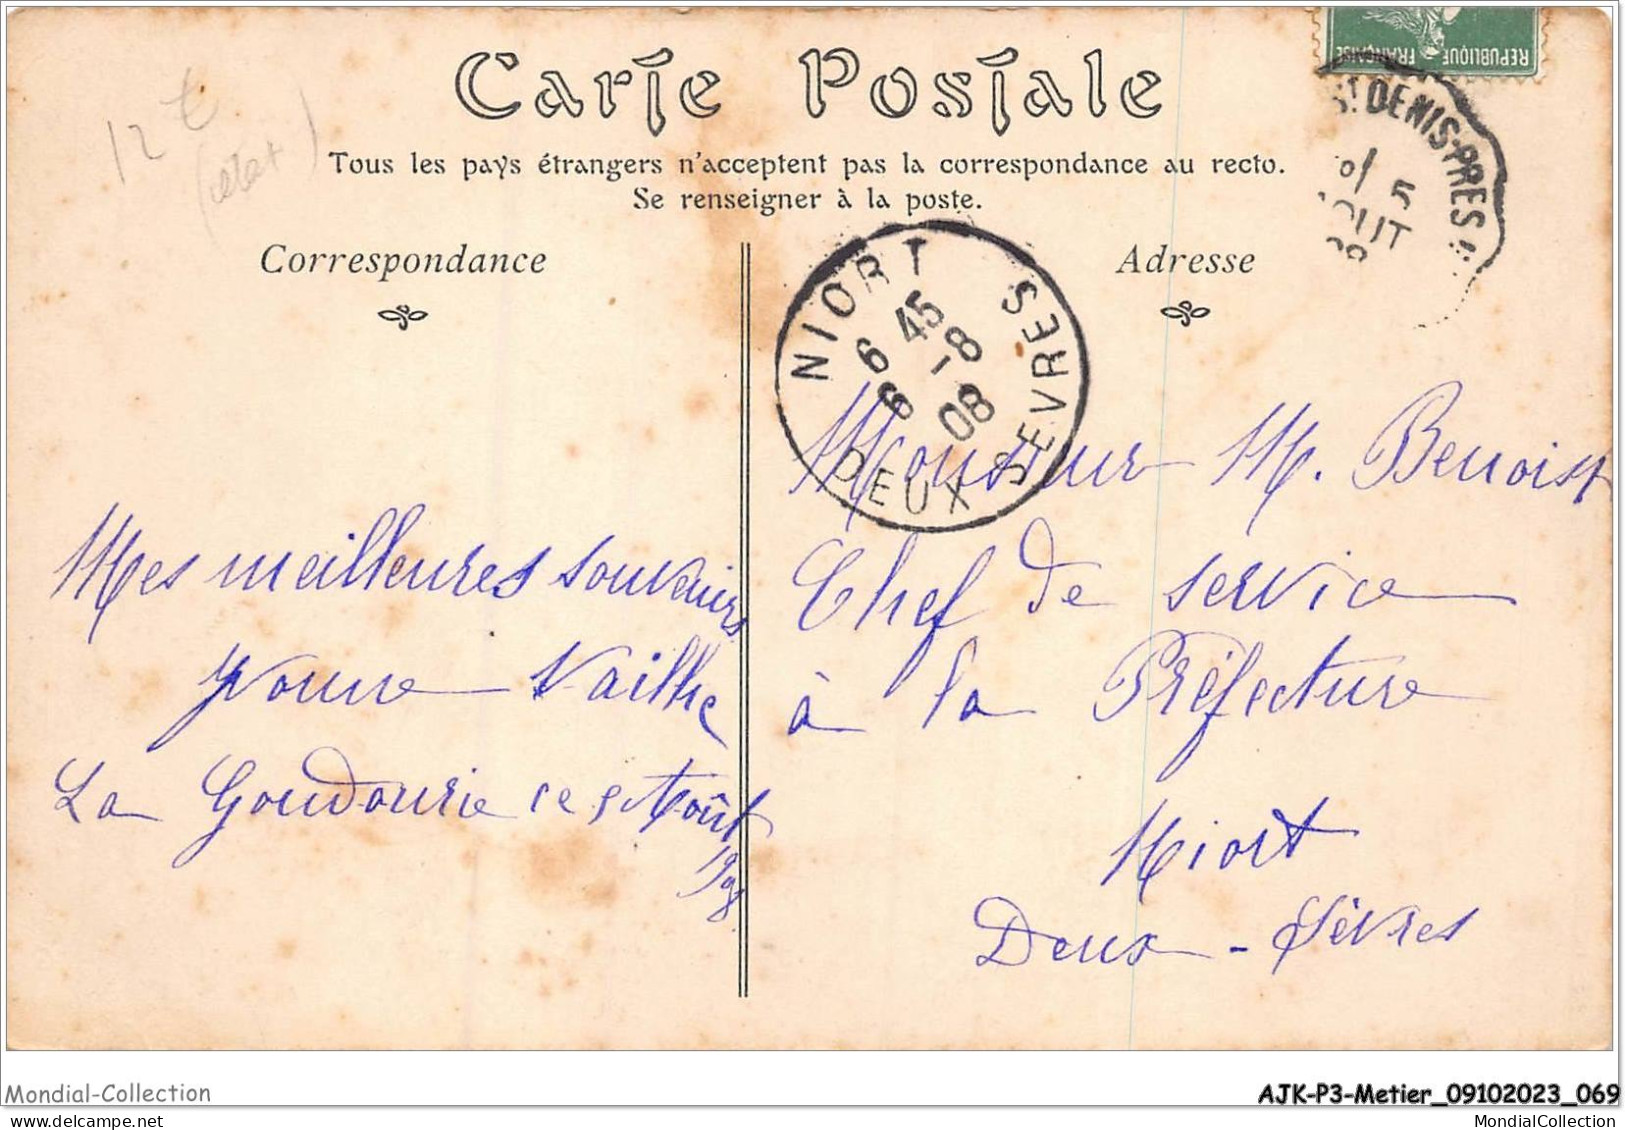 Carte Postale
Tous les pays étrangers n'acceptent pas la correspondance au recto.
Se renseigner à la poste.
Correspondance
Adresse
REPUBLIQUE FRANÇAISE
ST DENIS-PRES
5
AOUT
NIORT
DEUX SEVRES
6 45
6 -8
08
12 €
Monsieur M. Benoist
Chef de service
à la Préfecture
Niort
Deux-Sèvres
Mes meilleures souvenirs
Yvonne Vailhe
La Goudourie ce 5 Août
1908
Mondial-Collection
AJK-P3-Metier_09102023_069
MondialCollection